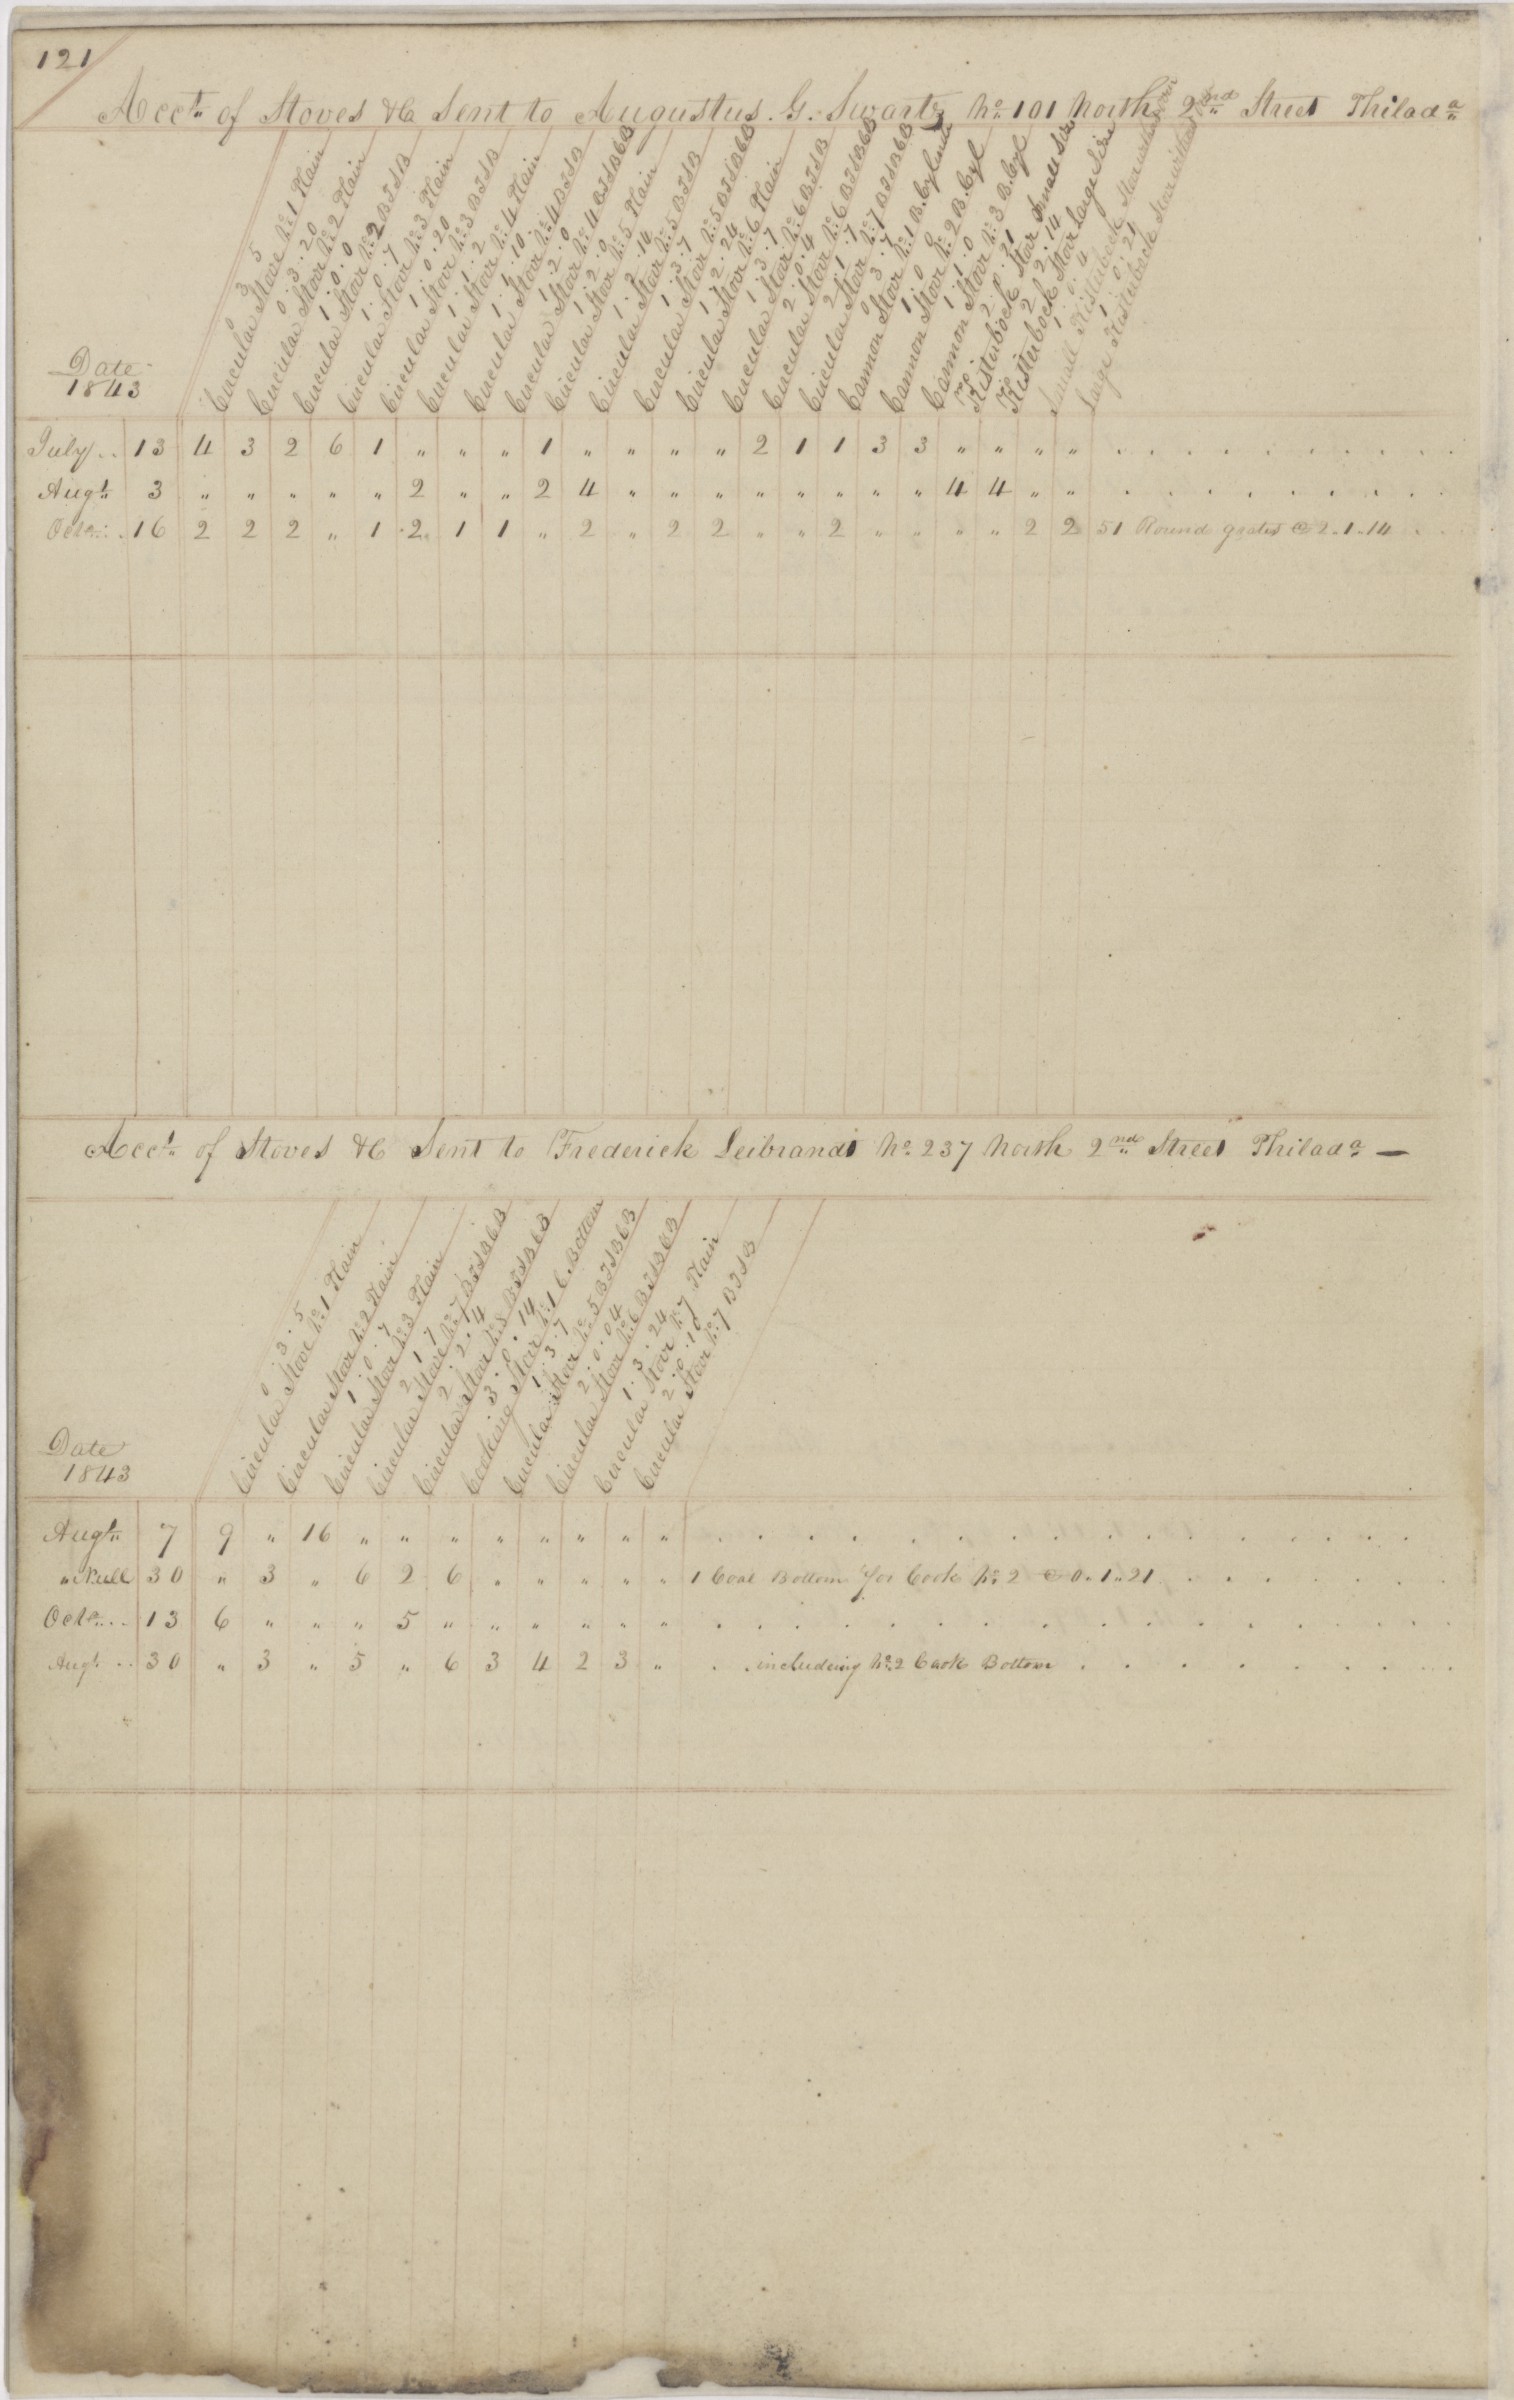 121
Acct. of Stoves &c Sent to Augustus. G. Swartz No. 101 North 2nd Street Philada
Date
1843
0 3 5
Circular Stove No. 1 Plain
0 . 3 . 20
Circular Stove No. 2 Plain
1 . 0 . 0
Circular Stove No. 2 B T S B
1 . 0 . 7
Circular Stove No. 3 Plain
1 . 0 . 20
Circular Stove No. 3 B T S B
1 . 1 . 2
Circular Stove No. 4 Plain
1 . 1 . 10
Circular Stove No. 4 B T S B
1 . 2 . 0
Circular Stove No. 4 B T S B 6 B
1 . 2 . 0
Circular Stove No. 5 Plain
1 . 2 . 14
Circular Stove No. 5 B T S B
1 . 3 . 7
Circular Stove No. 5 B T S B 6 B
1 . 2 . 24
Circular Stove No. 6 Plain
1 . 3 . 7
Circular Stove No. 6 B T S B
2 . 0 . 4
Circular Stove No. 6 B T S B 6 B
2 . 1 . 7
Circular Stove No. 7 B T S B 6 B
0 3 . 7
Cannon Stove No. 1 B. Cylinder
1 0 0
Cannon Stove No. 2 B. Cyl
1 . 1 . 0
Cannon Stove No. 3 B. Cyl
2 . 0 . 21
Kisterbock Stove Small Size
2 . 2 . 14
Kisterbock Stove Large Size
1 . 0 . 4
Small Kisterbock Stove without
1 . 0 . 21
Large Kisterbock Stove without
July . . 13 4 3 2 6 1 " " " 1 " " " " 2 1 1 3 3 " " " "
Augt. 3 " " " " " 2 " " 2 4 " " " " " " " " 4 4 " "
Octr. . 16 2 2 2 " 1 2 1 1 " 2 " 2 2 " " 2 " " " " 2 2 51 Round grates @ 2 . 1 . 14
Acct. of Stoves &c Sent to Frederick Leibrandt No. 237 North 2nd Street Philada —
Date
1843
0 . 3 . 5
Circular Stove No. 1 Plain
Circular Stove No. 2 Plain
1 . 0 . 7
Circular Stove No. 3 Plain
2 1 . 7
Circular Stove No. 7 B T S B 6 B
2 . 2 . 4
Circular Stove No. 8 B T S B 6 B
3 . 0 . 14
Cooking Stove No. 1 C. Bottom
1 . 3 . 7
Circular Stove No. 5 B T S B 6 B
2 . 0 . 04
Circular Stove No. 6 B T S B 6 B
1 . 3 . 24
Circular Stove No. 7 Plain
2 . 0 . 10
Circular Stove No. 7 B T S B
Augt. 7 9 " 16 " " " " " " " "
" Null 30 " 3 " 6 2 6 " " " " " 1 Coal Bottom for Cook No. 2 @ 0 . 1 . 21
Octr. . . 13 6 " " " 5 " " " " " "
Augt. . . 30 " 3 " 5 " 6 3 4 2 3 " . . including No. 2 Cook Bottom